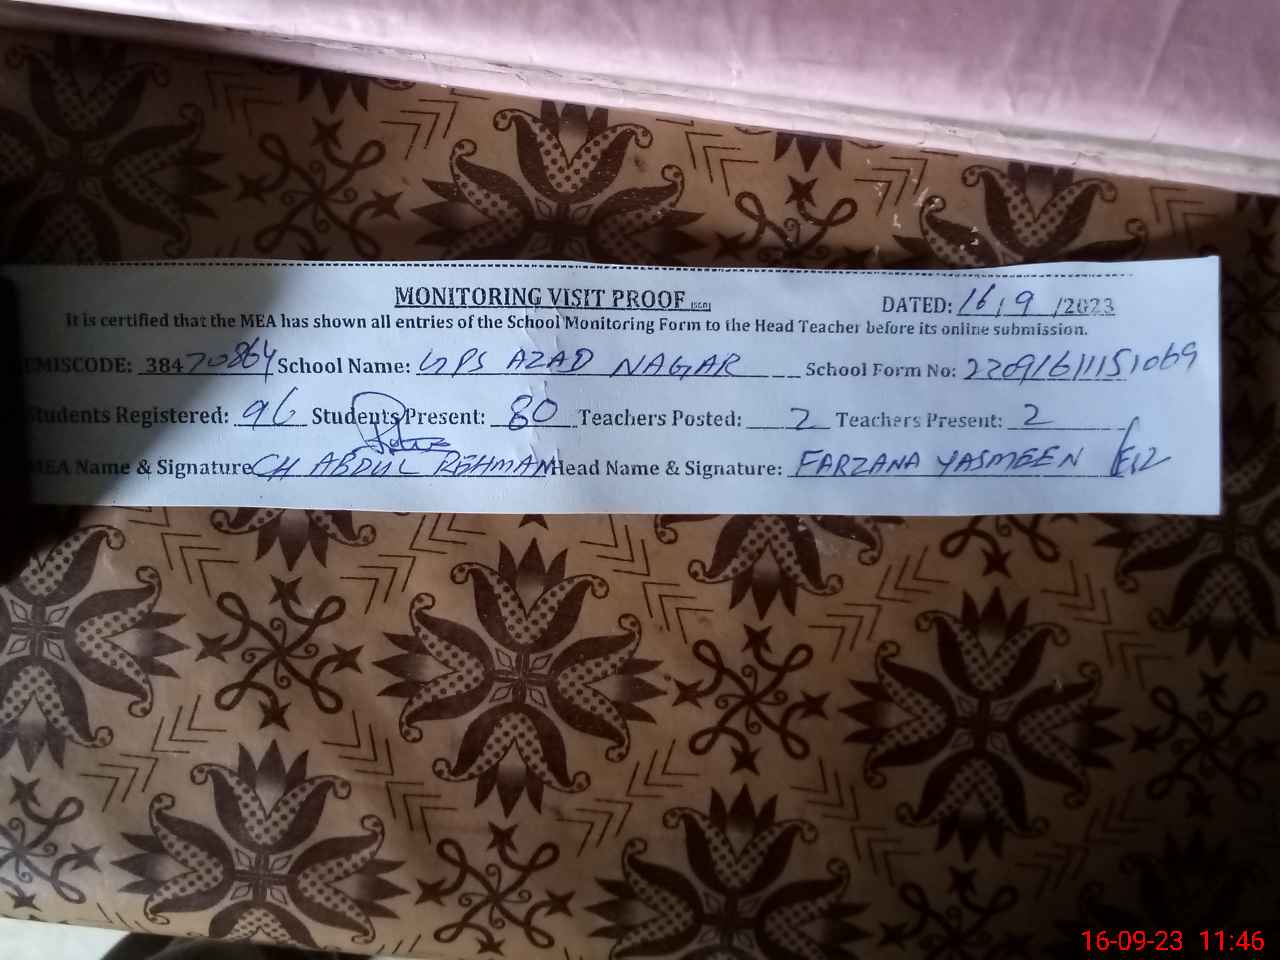 MONITORING VISIT PROOF
DATED: 16/9/2023
It is certified that the MEA has shown all entries of the School Monitoring Form to the Head Teacher before its online submission.
EMISCODE: 38470864 School Name: GPS AZAD NAGAR School Form No:
Students Registered: 96 Students Present: 80 Teachers Posted: 2 Teachers Present: 2
MEA Name & Signature CH ABDUL REHMAN Head Name & Signature: FARZANA YASMEEN
16-09-23 11:46